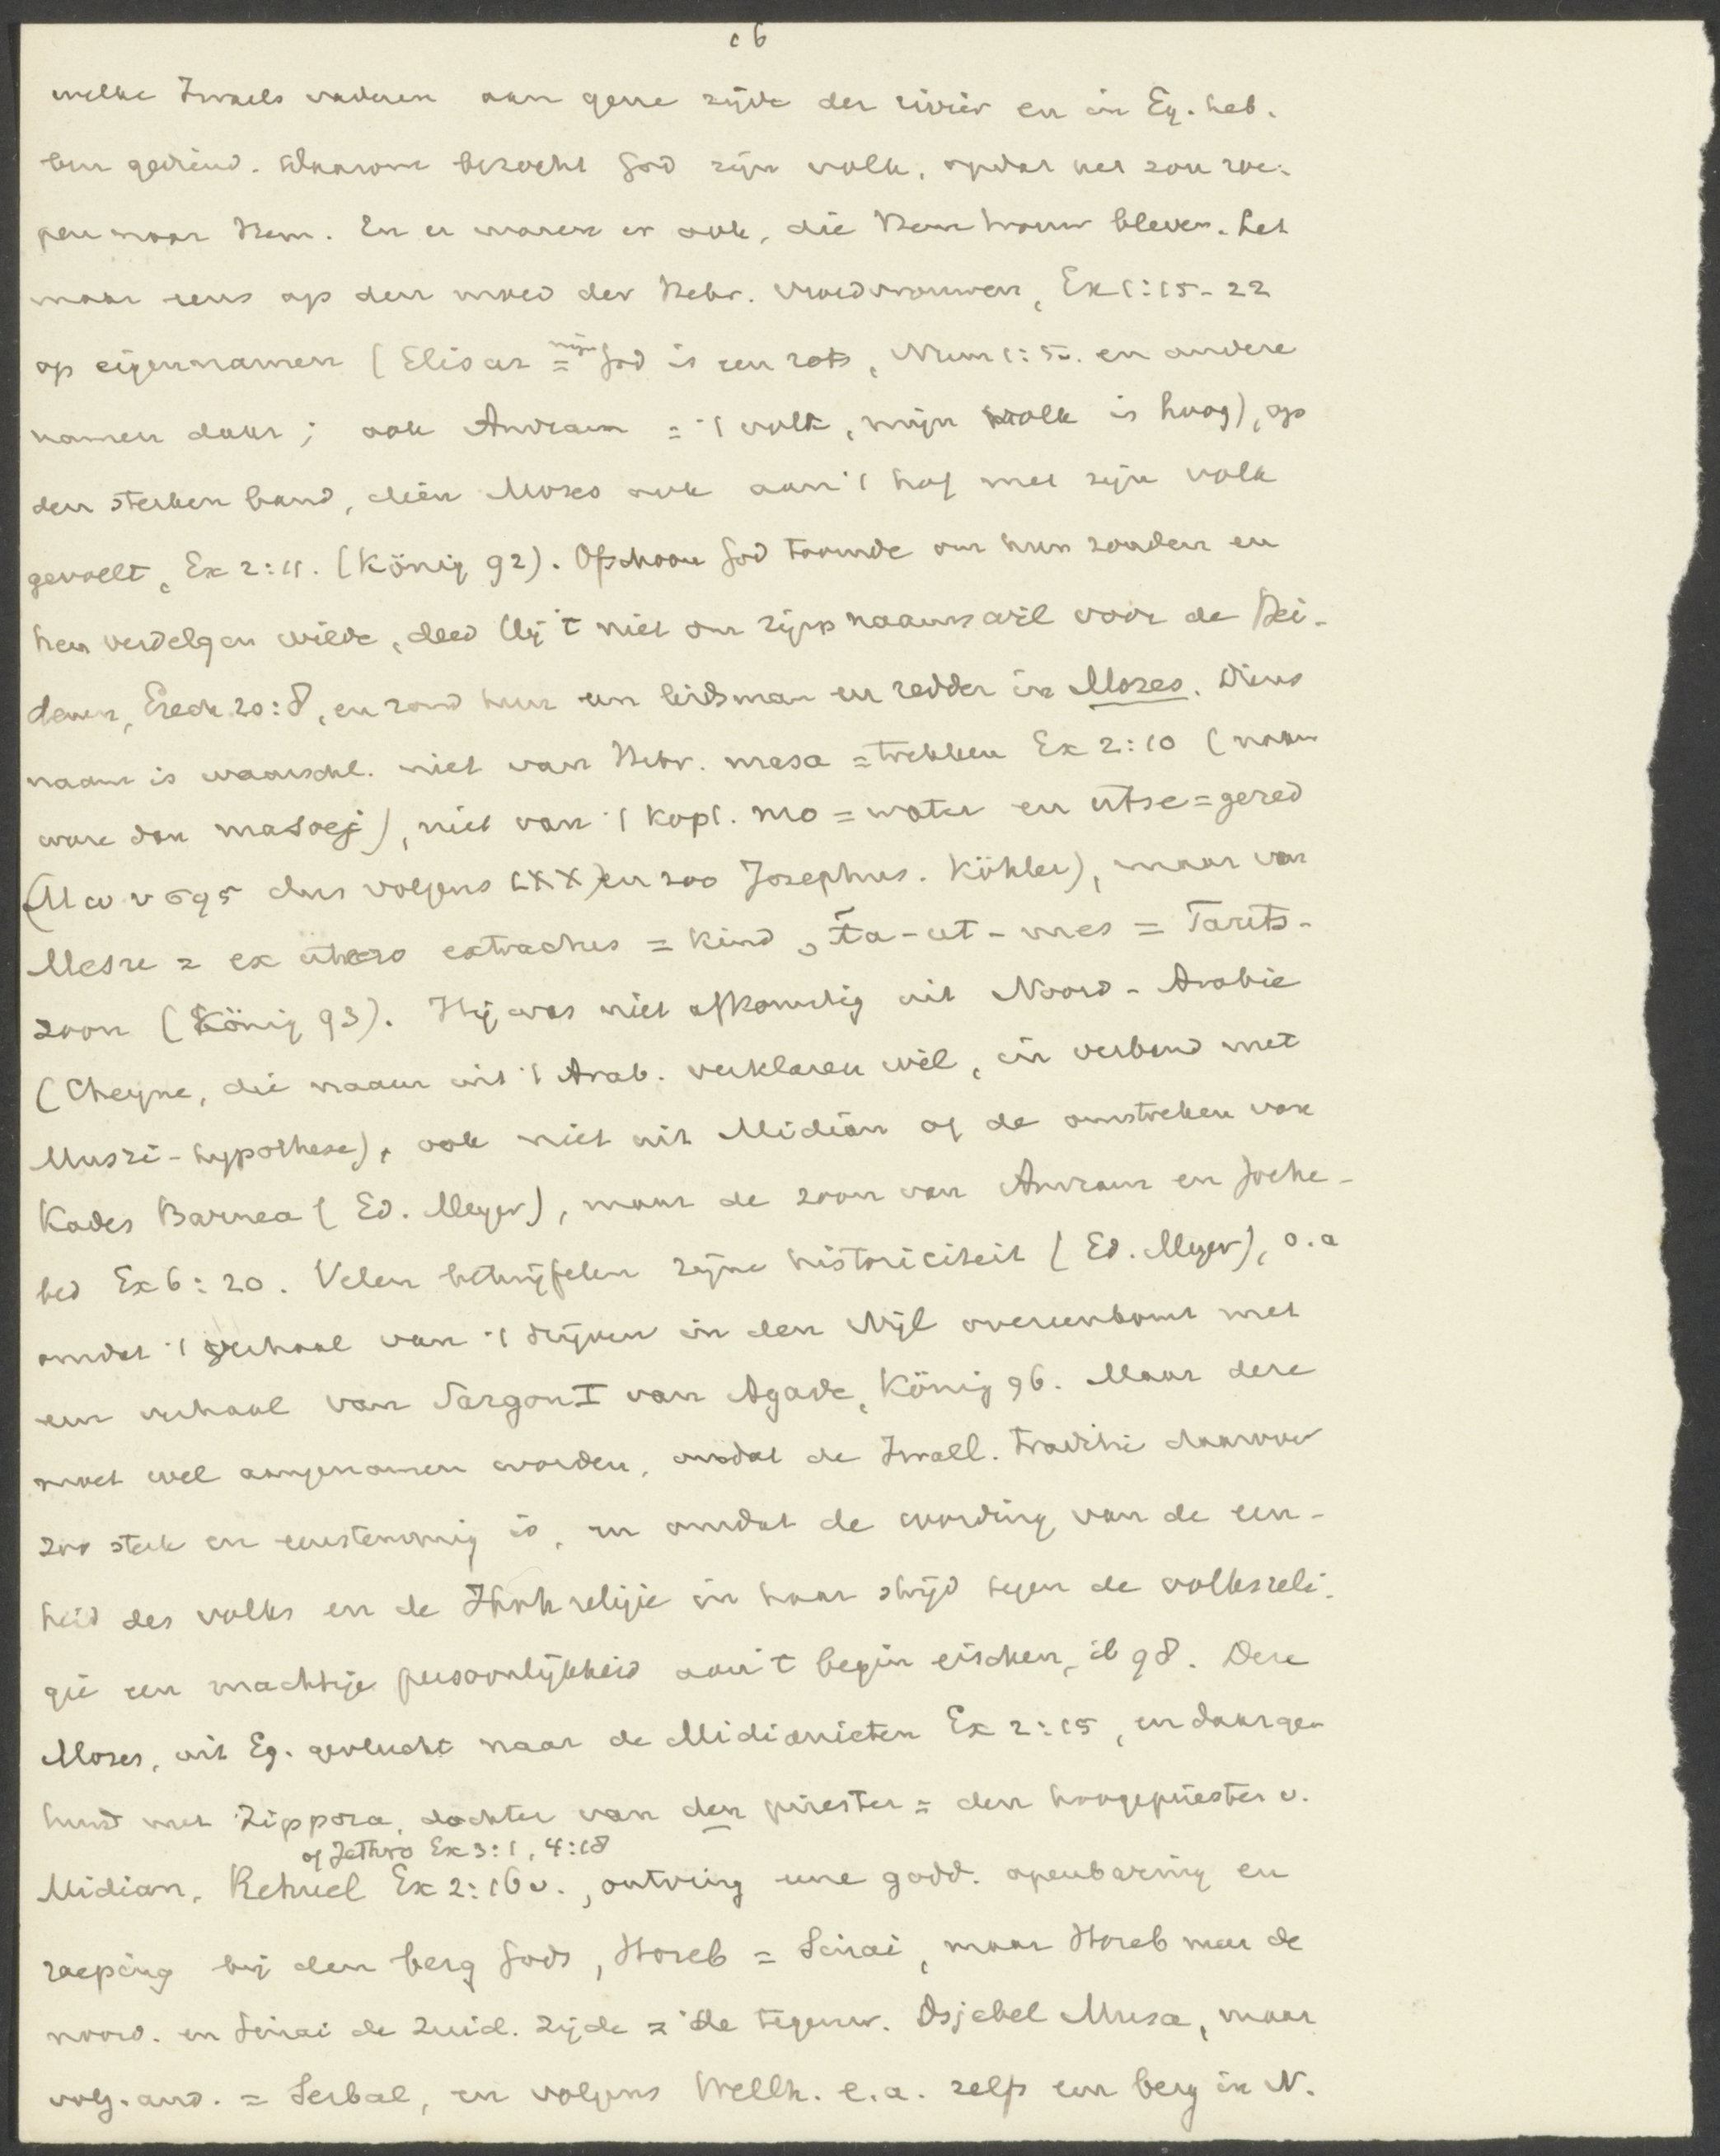 16
welke Israels vaderen aan gene zijde der rivier en in Eg. heb-
ben gediend. Daarom bezocht God zijn volk, opdat het zou roe-
pen naar Hem. En er waren er ook, die Hem trouw bleven. Let
maar eens op den moed der Hebr. vroedvrouwen, Ex 1:15-22
op eigennamen (Elisur = mijn God is een rots, Num 1:5v. en andere
namen daar; ook Amram = 't volk, mijn volk is hoog), op
den sterken band, dien Mozes ook aan 't hof met zijn volk
gevoelt, Ex 2:11. (König 92). Ofschoon God toornde om hun zonden en
hen verdelgen wilde, deed Hij 't niet om zijns naams wil voor de Hei-
denen, Ezech 20:8, en zond hun een leidsman en redder in Mozes. Diens
naam is waarschl. niet van Hebr. masa = trekken Ex 2:10 (naam
ware dan masoej), niet van 't Kopt. mo = water en utse = gered
(Μωυσης dus volgens LXX) en zoo Josephus. Köhler), maar van
Mesu = ex utero extractus = kind, Ta-ut-mes = Tauts-
zoon (König 93). Hij was niet afkomstig uit Noord-Arabie
(Cheyne, die naam uit 't Arab. verklaren wil, in verband met
Musri-hypothese), ook niet uit Midian of de omstreken van
Kades Barnea (Ed. Meyer), maar de zoon van Amram en Joche-
bed Ex 6:20. Velen betwijfelen zijne historiciteit (Ed. Meyer), o.a
omdat 't verhaal van 't drijven in den Nijl overeenkomt met
een verhaal van Sargon I van Agade, König 96. Maar deze
moet wel aangenomen worden, omdat de Israel. traditie daarvoor
zoo sterk en eenstemmig is, en omdat de wording van de een-
heid des volks en de Jhvh religie in haar strijd tegen de volksreli-
gie een machtige persoonlijkheid aan 't begin eischen, ib 98. Deze
Mozes, uit Eg. gevlucht naar de Midianieten Ex 2:15, en daar ge-
huwd met Zippora, dochter van den priester = den hoogepriester v.
of Jethro Ex 3:1, 4:18
Midian, Rehuel Ex 2:16v., ontving eene godd. openbaring en
roeping bij den berg Gods, Horeb = Sinai, maar Horeb meer de
noord. en Sinai de zuid. zijde = de tegenw. Dsjebel Musa, maar
volg. and. = Serbal, en volgens Wellh. e.a. zelfs een berg in N.